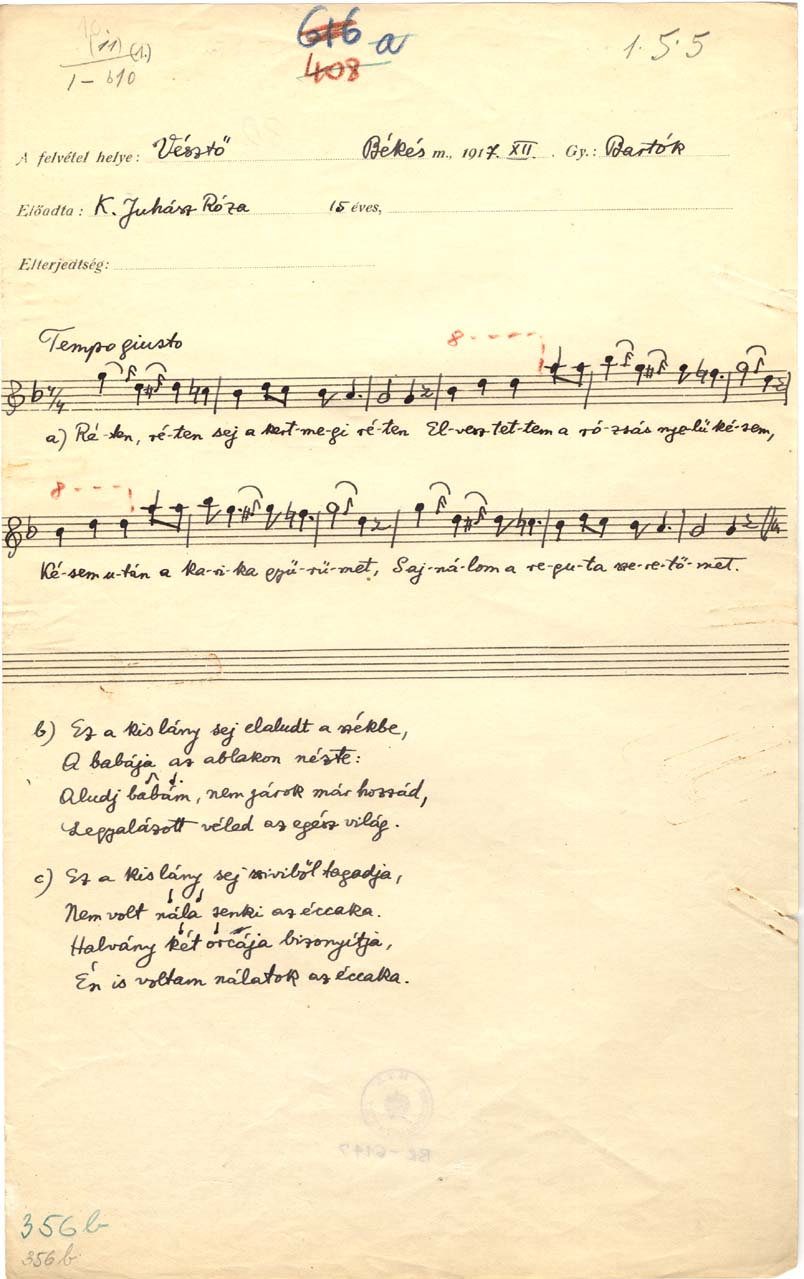 10
(11) (1.)
I – 610
616 a
408
1.5.5
A felvétel helye: Vésztő Békés m., 1917. XII. Gy.: Bartók
Előadta: K. Juhász Róza 15 éves,
Elterjedtség:
Tempo giusto
8
a) Ré-ten, ré-ten sej a kert-me-gi ré-ten El-vesz-tet-tem a ró-zsás nye-lű ké-sem,
8
Ké-sem u-tán a ka-ri-ka gyű-rű-met, Saj-ná-lom a re-gu-ta sze-re-tő-met.
b) Ez a kis lány sej elaludt a székbe,
A babája az ablakon nézte:
Aludj babám, nem járok már hozzád,
Legyalázott véled az egész világ.
c) Ez a kis lány sej sziviből tagadja,
Nem volt nála senki az éccaka.
Halvány két orcája bizonyítja,
Én is voltam nálatok az éccaka.
BR – 6147
356b
356b